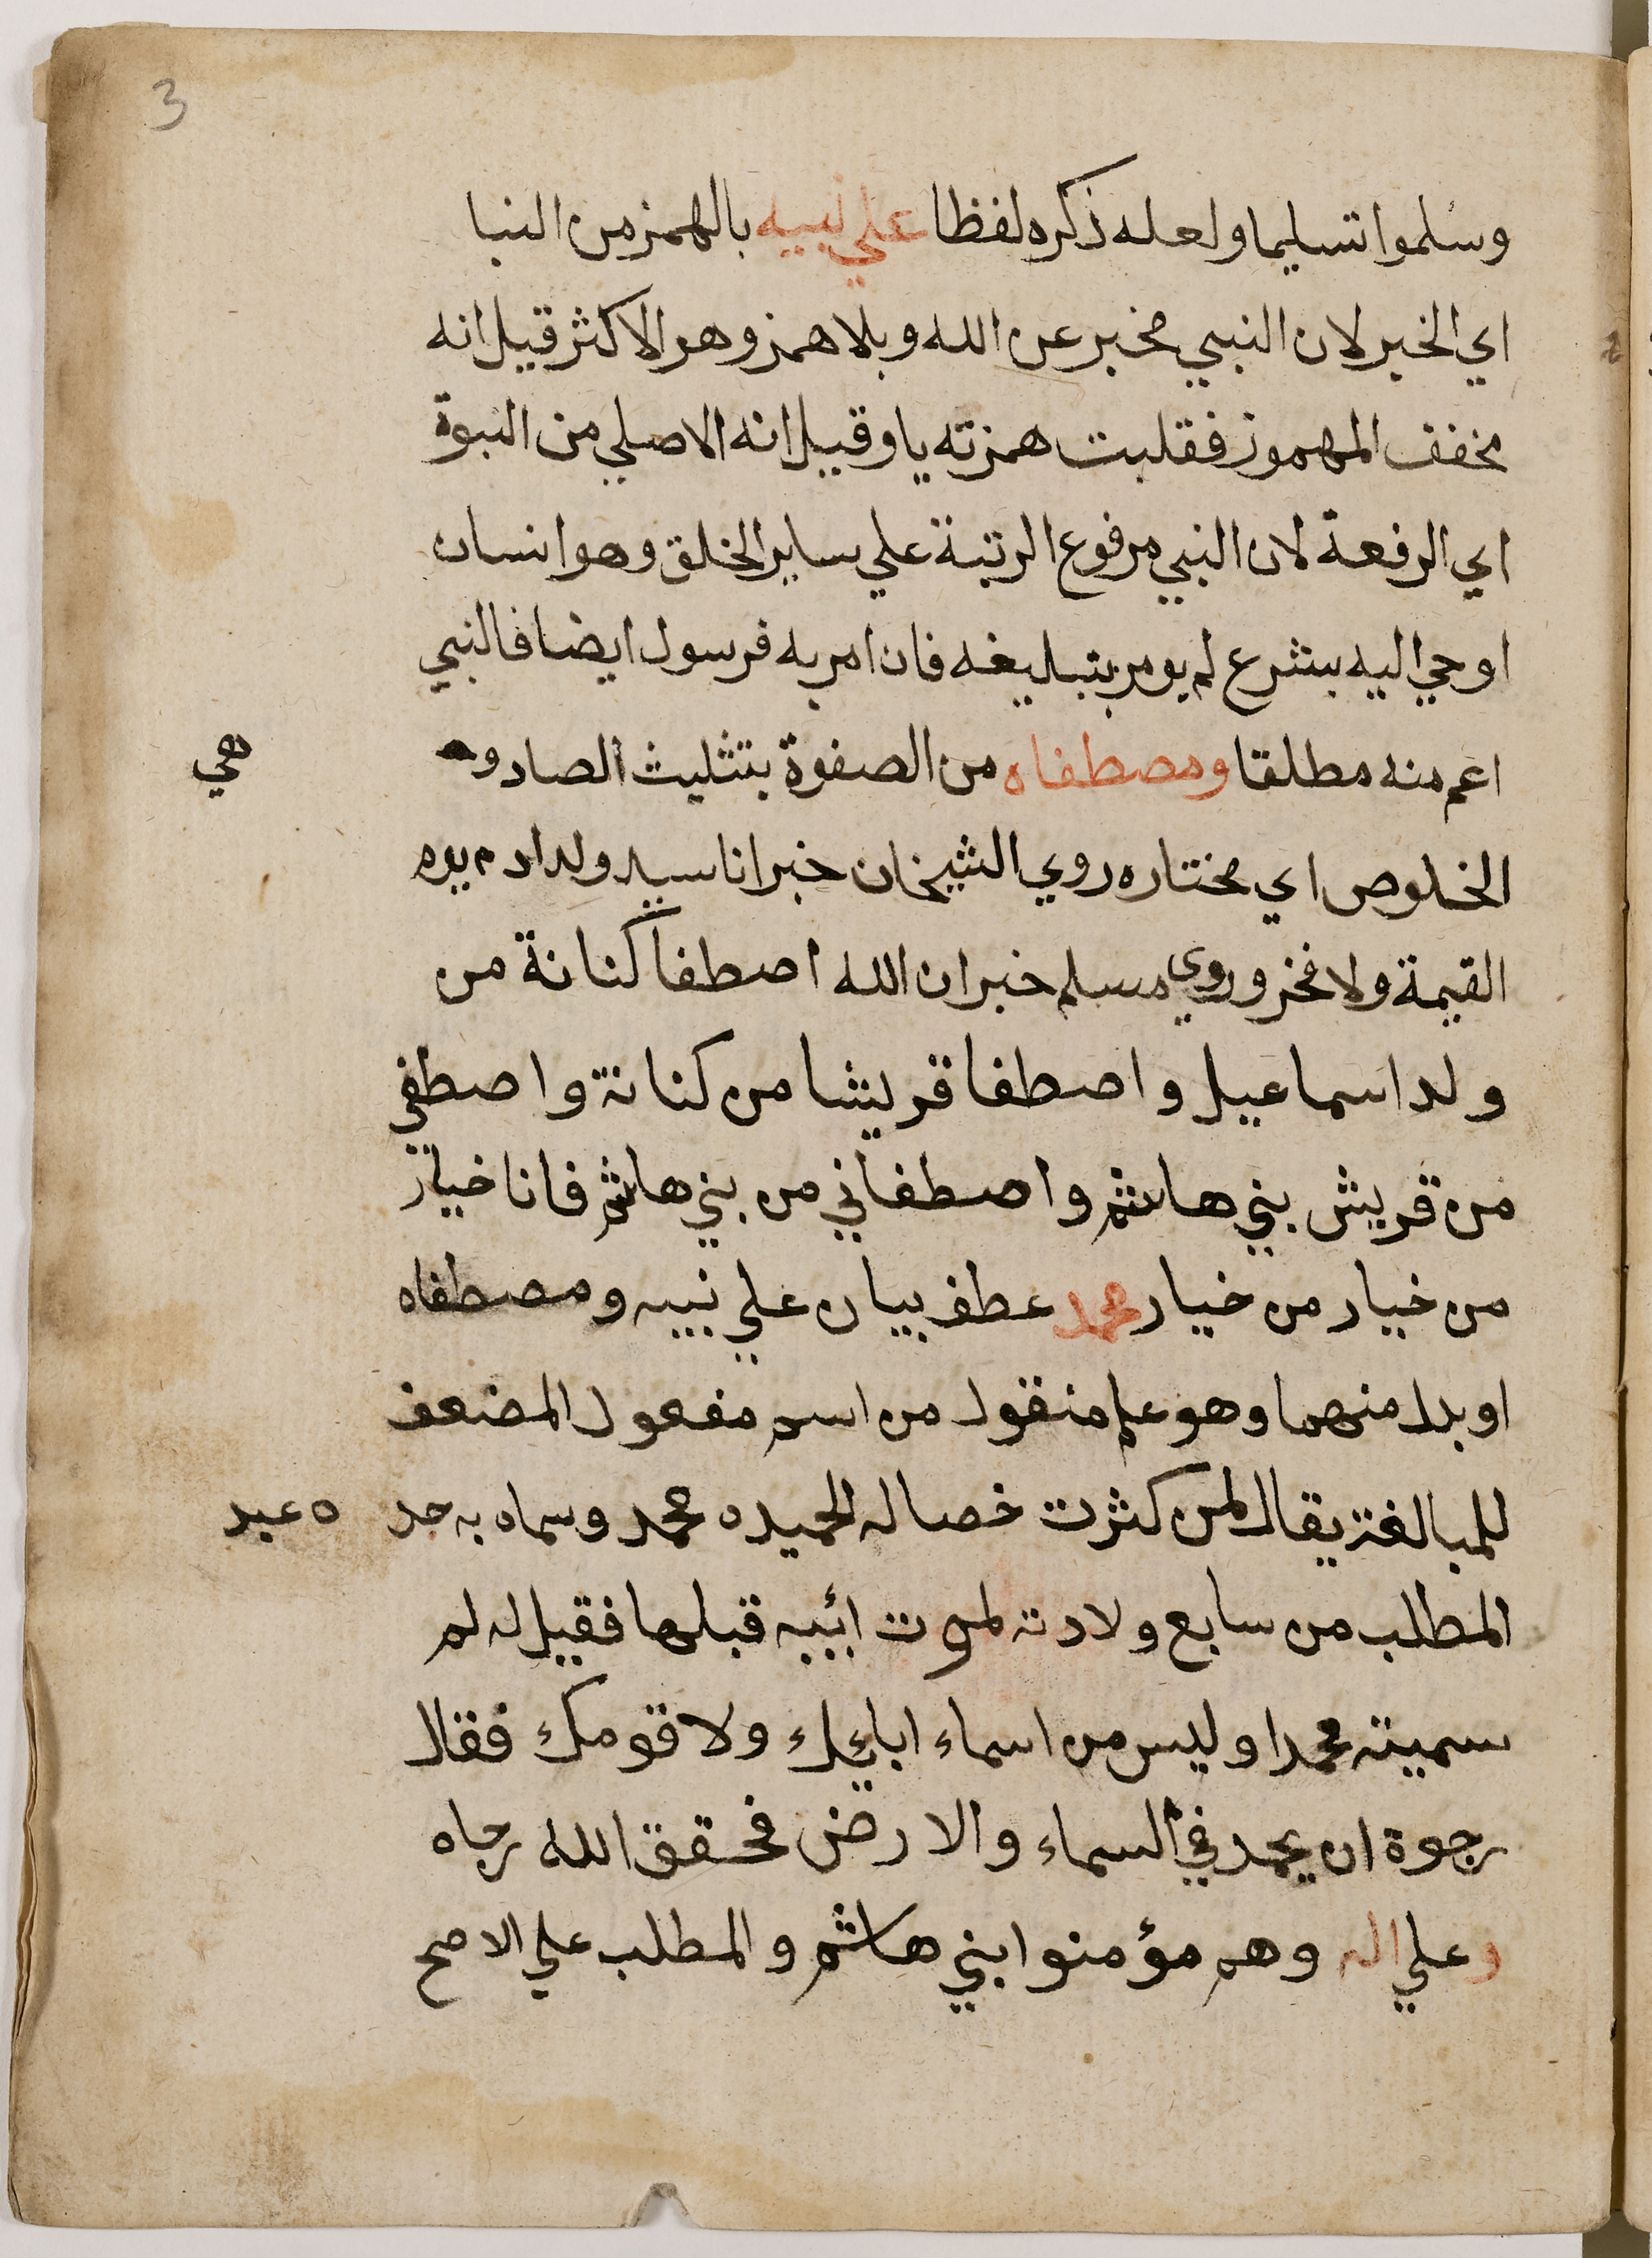 3
وسلموا تسليما ولعله ذكره لفظا علي نبيه بالهمز من النبا
اي الخبر لان النبي مخبر عن الله وبلا همز وهو الاكثر قيل انه
مخفف المهموز فقلبت همزته يا وقيل انه الاصلي من النبوة
اي الرفعة لان النبي مرفوع الرتبة علي ساير الخلق وهو انسان
اوحي اليه بشرع لم يومر بتبليغه فان امر به فرسول ايضا فالنبي
اعم منه مطلقا ومصطفاه من الصفوة بتثليث الصاد و هي
الخلوص اي مختاره روي الشيخان خبر انا سيد ولد ادم يوم
القيمة ولا فخر وروي مسلم خبر ان الله اصطفا كنانة من
ولد اسماعيل واصطفا قريشا من كنانة واصطفي
من قريش بني هاشم واصطفاني من بني هاشم فانا خيار
من خيار من خيار محمد عطف بيان علي نبيه ومصطفاه
او بدل منهما وهو علم منقول من اسم مفعول المضعف
للمبالغة يقال لمن كثرت خصاله الحميده محمد وسماه به جد ه عبد
المطلب من سابع ولادته لموت ابيه قبلها فقيل له لم
سميته محمدا وليس من اسماء ابايك ولا قومك فقال
رجوة ان يحمد في السماء والارض فحقق الله رجاه
وعلي اله وهم مؤمنوا بني هاشم والمطلب علي الاصح